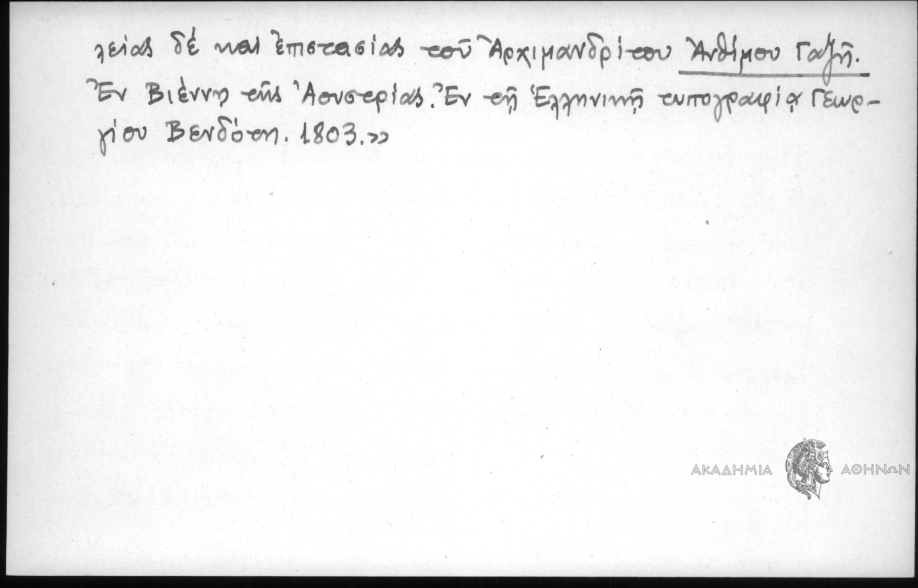 λείας δέ καί ἐπιστασίας τοῦ Ἀρχιμανδρίτου Ἀνθίμου Γαζῆ.
Ἐν Βιέννῃ τῆς Ἀουστρίας. Ἐν τῇ Ἑλληνικῇ τυπογραφίᾳ Γεωρ-
γίου Βενδότη. 1803.»
ΑΚΑΔΗΜΙΑ ΑΘΗΝΩΝ